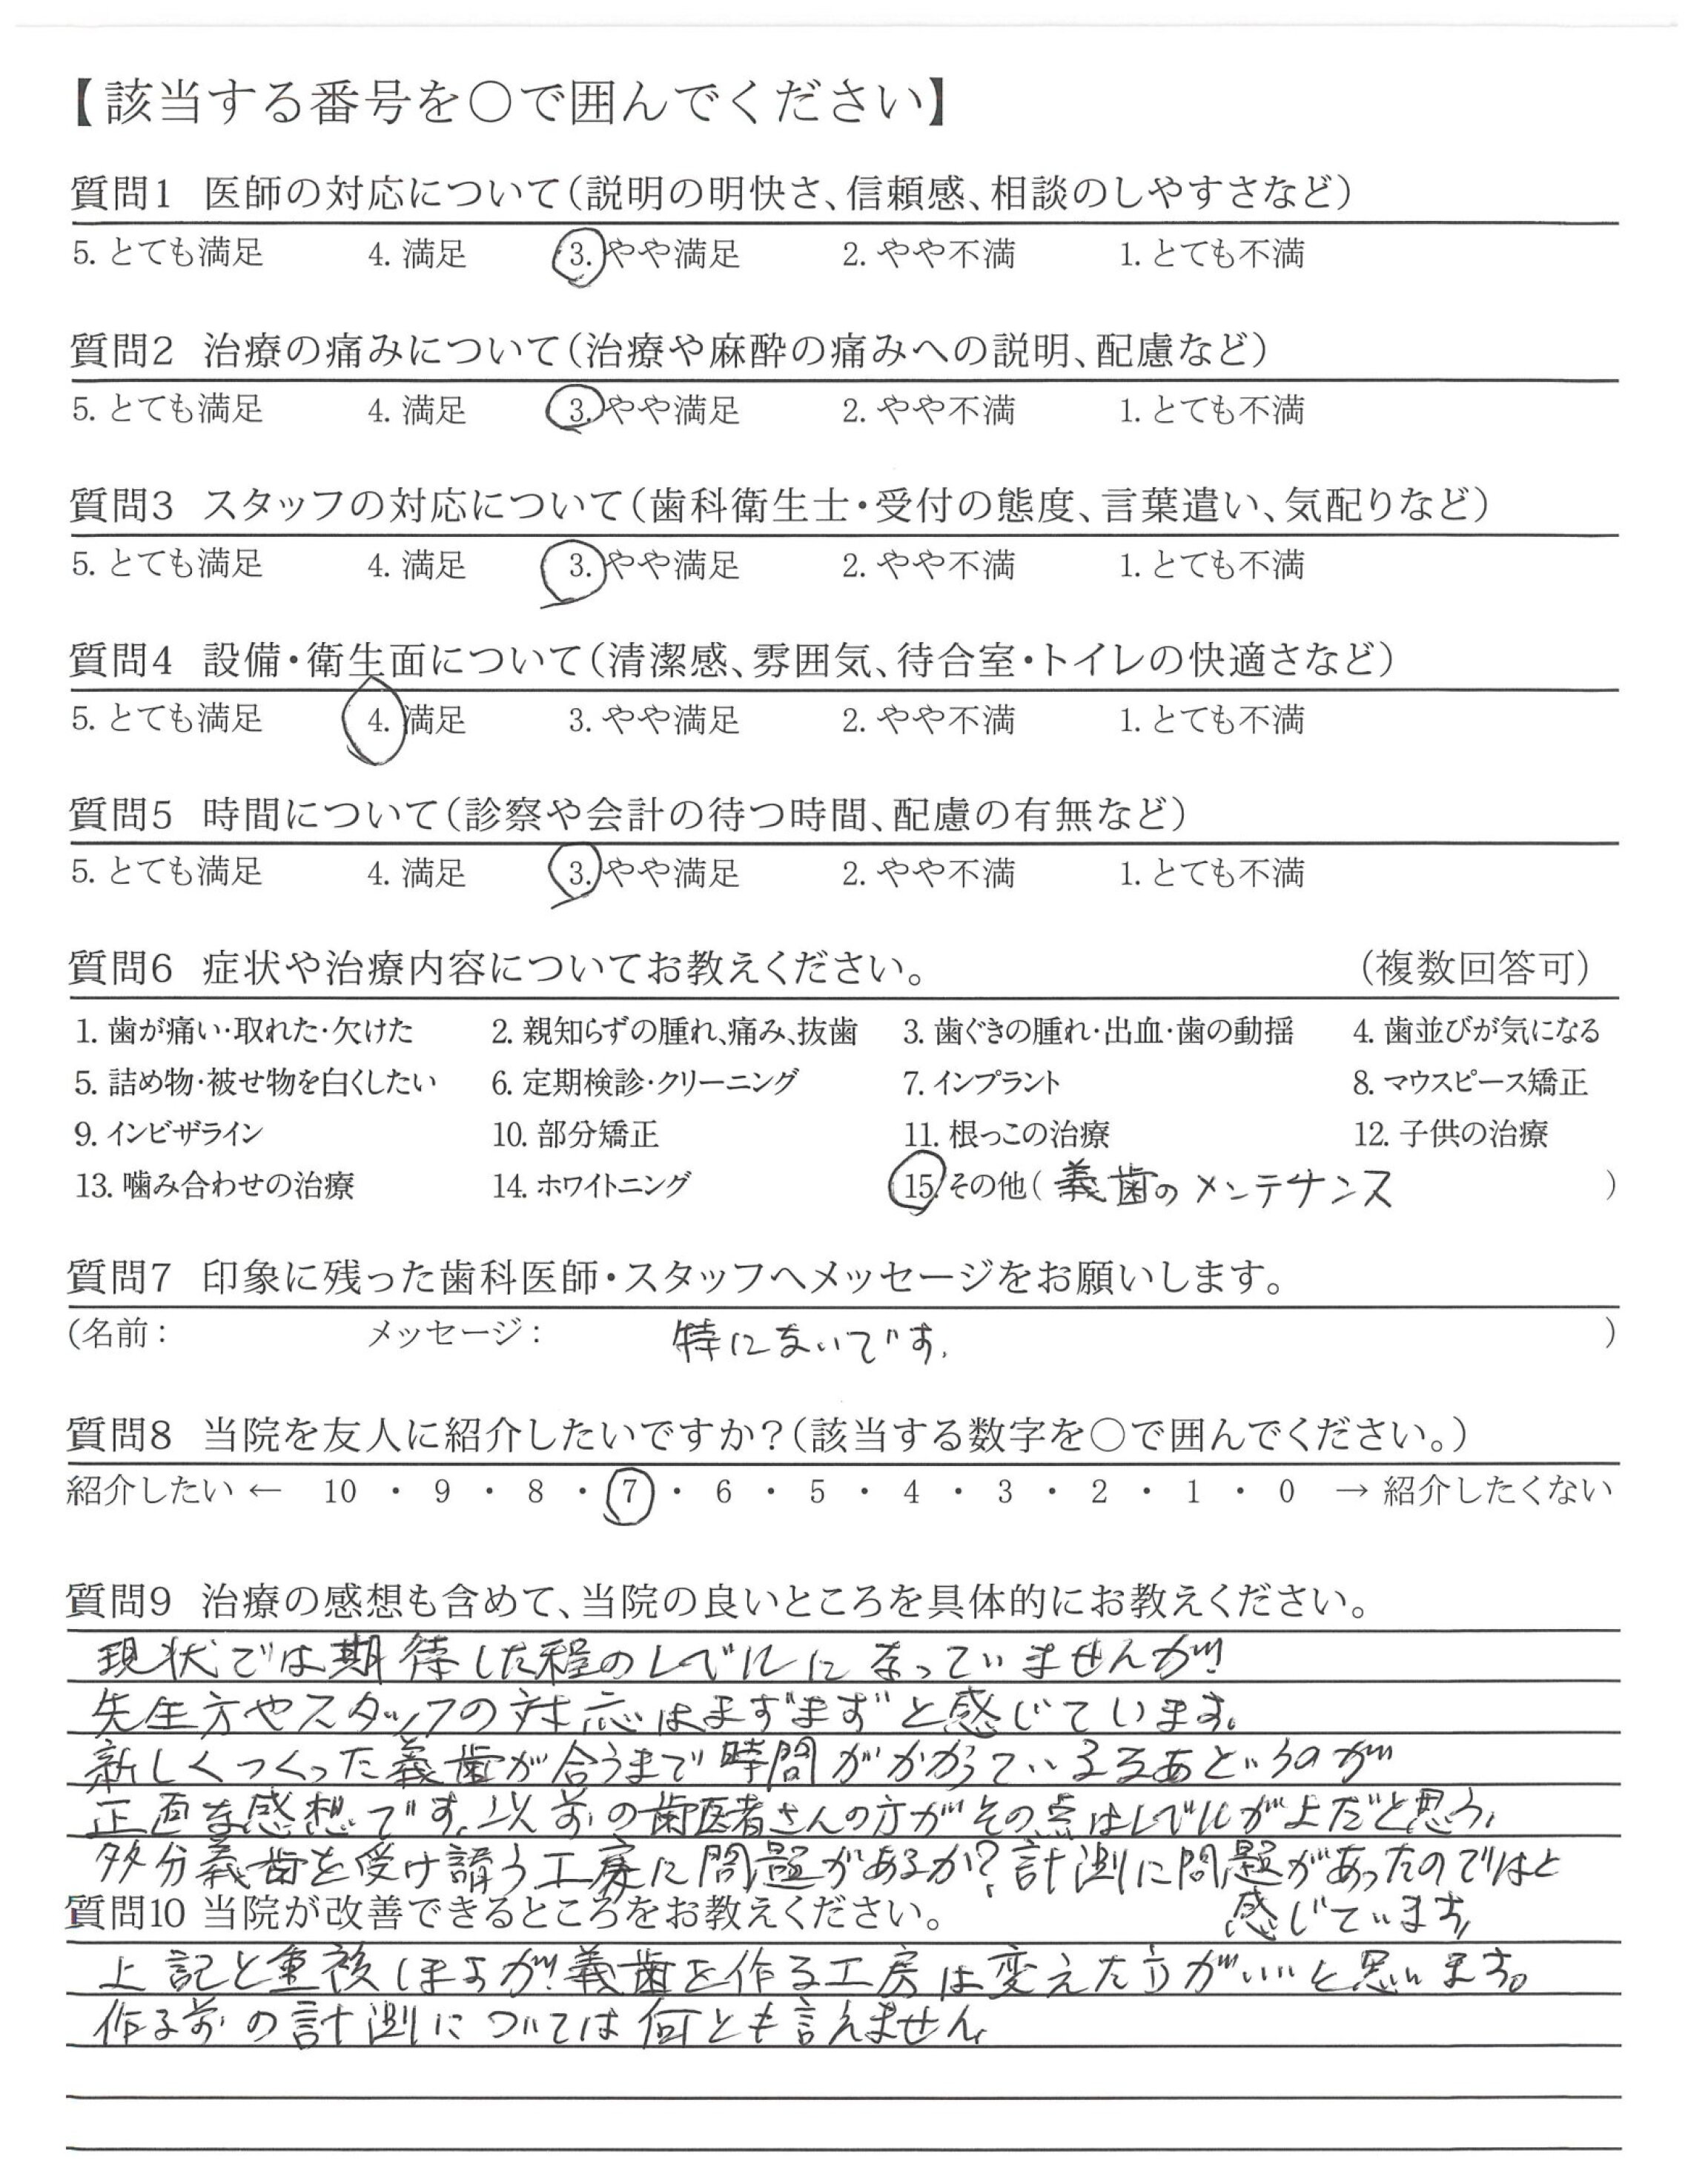 【該当する番号を〇で囲んでください】
質問1 医師の対応について(説明の明快さ、信頼感、相談のしやすさなど)
5. とても満足 4. 満足 3. やや満足 2. やや不満 1. とても不満
質問2 治療の痛みについて(治療や麻酔の痛みへの説明、配慮など)
5. とても満足 4. 満足 3. やや満足 2. やや不満 1. とても不満
質問3 スタッフの対応について(歯科衛生士・受付の態度、言葉遣い、気配りなど)
5. とても満足 4. 満足 3. やや満足 2. やや不満 1. とても不満
質問4 設備・衛生面について(清潔感、雰囲気、待合室・トイレの快適さなど)
5. とても満足 4. 満足 3. やや満足 2. やや不満 1. とても不満
質問5 時間について(診察や会計の待つ時間、配慮の有無など)
5. とても満足 4. 満足 3. やや満足 2. やや不満 1. とても不満
質問6 症状や治療内容についてお教えください。 (複数回答可)
1. 歯が痛い・取れた・欠けた 2. 親知らずの腫れ、痛み、抜歯 3. 歯ぐきの腫れ・出血・歯の動揺 4. 歯並びが気になる
5. 詰め物・被せ物を白くしたい 6. 定期検診・クリーニング 7. インプラント 8. マウスピース矯正
9. インビザライン 10. 部分矯正 11. 根っこの治療 12. 子供の治療
13. 噛み合わせの治療 14. ホワイトニング 15. その他( 義歯のメンテナンス )
質問7 印象に残った歯科医師・スタッフへメッセージをお願いします。
(名前: メッセージ: 特にないです。 )
質問8 当院を友人に紹介したいですか?(該当する数字を〇で囲んでください。)
紹介したい ← 10 ・ 9 ・ 8 ・ 7 ・ 6 ・ 5 ・ 4 ・ 3 ・ 2 ・ 1 ・ 0 → 紹介したくない
質問9 治療の感想も含めて、当院の良いところを具体的にお教えください。
現状では期待した程のレベルになっていませんが
先生方やスタッフの対応はまずまずと感じています。
新しくつくった義歯が合うまで時間がかかっているなあというのが
正直な感想です。以前の歯医者さんの方がその点はレベルが だと思う。
多分義歯を受け請う工房に問題があるか?計測に問題があったのではと
感じています。
質問10 当院が改善できるところをお教えください。
上記と重複しますが義歯を作る工房は変えた方がいいと思います。
作る前の計測については何とも言えません。